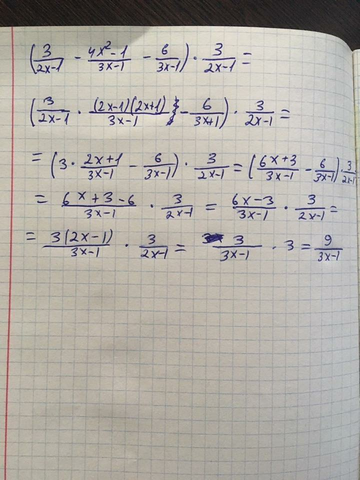 (3/(2x-1) - (4x²-1)/(3x-1) - 6/(3x-1)) · 3/(2x-1) =
(3/(2x-1) · ((2x-1)(2x+1))/(3x-1) - 6/(3x+1)) · 3/(2x-1) =
= (3 · (2x+1)/(3x-1) - 6/(3x-1)) · 3/(2x-1) = ((6x+3)/(3x-1) - 6/(3x-1)) · 3/(2x-1)
= (6x+3-6)/(3x-1) · 3/(2x-1) = (6x-3)/(3x-1) · 3/(2x-1) =
= 3(2x-1)/(3x-1) · 3/(2x-1) = 3/(3x-1) · 3 = 9/(3x-1)